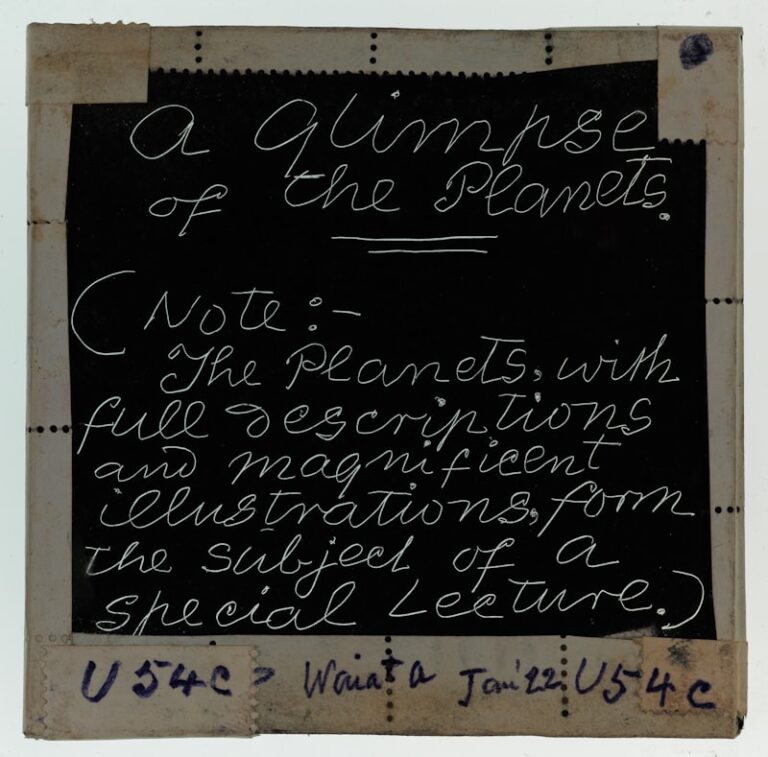 A Glimpse
of the Planets.
(Note:-
The Planets, with
full descriptions
and magnificent
illustrations, form
the subject of a
special Lecture.)
U54C Waiata Jan '22 U54C